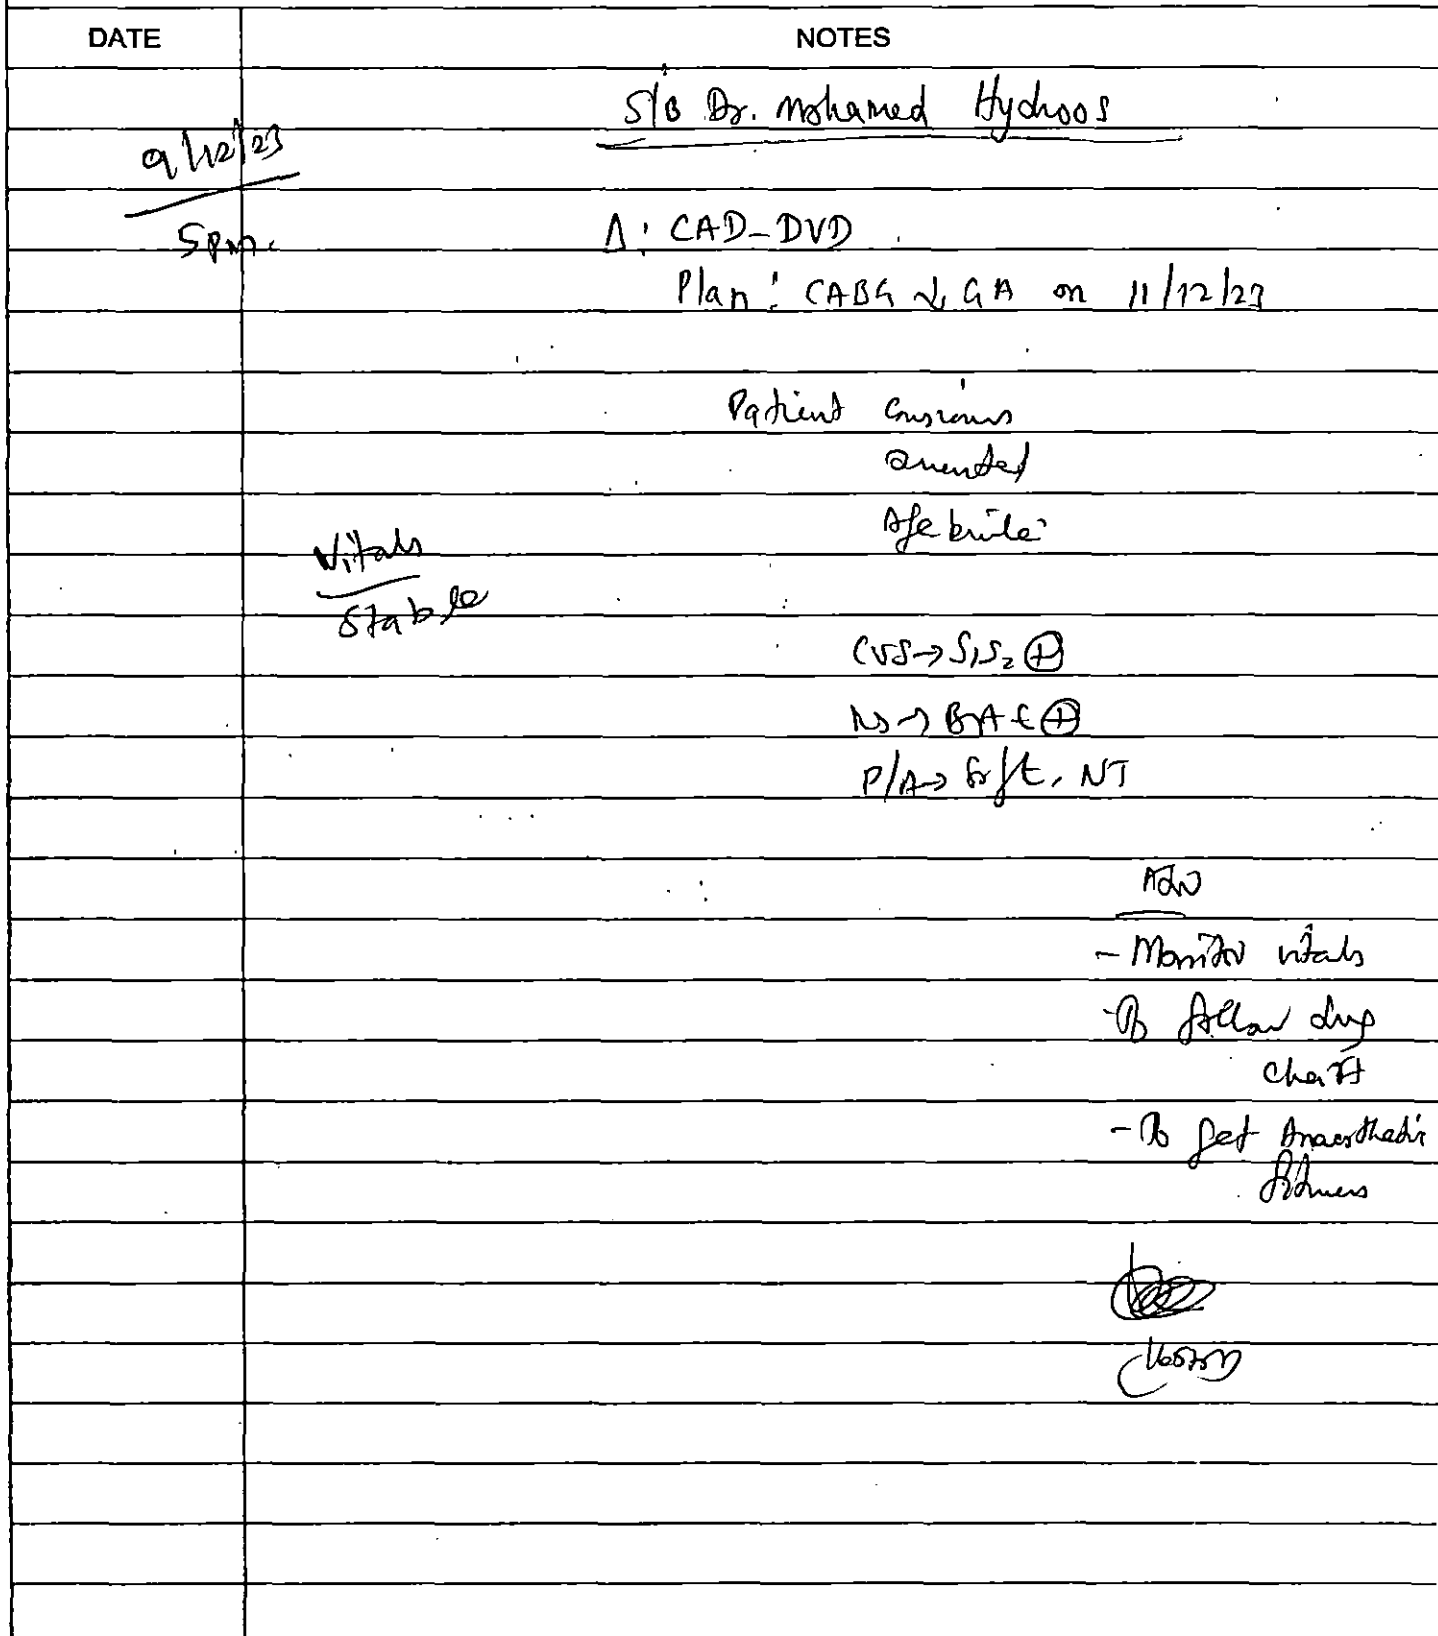 DATE NOTES
S/B Dr. Mohamed Hydroos
9/12/23
5pm.
Δ: CAD-DVD
Plan: CABG ↓ GA on 11/12/23
Patient conscious
oriented
Afebrile
Vitals
Stable
CVS→ S1S2 ⊕
RS→ BAE ⊕
P/A→ Soft, NT
Adv
- Monitor vitals
- To follow drug
chart
- To get Anaesthetic
fitness